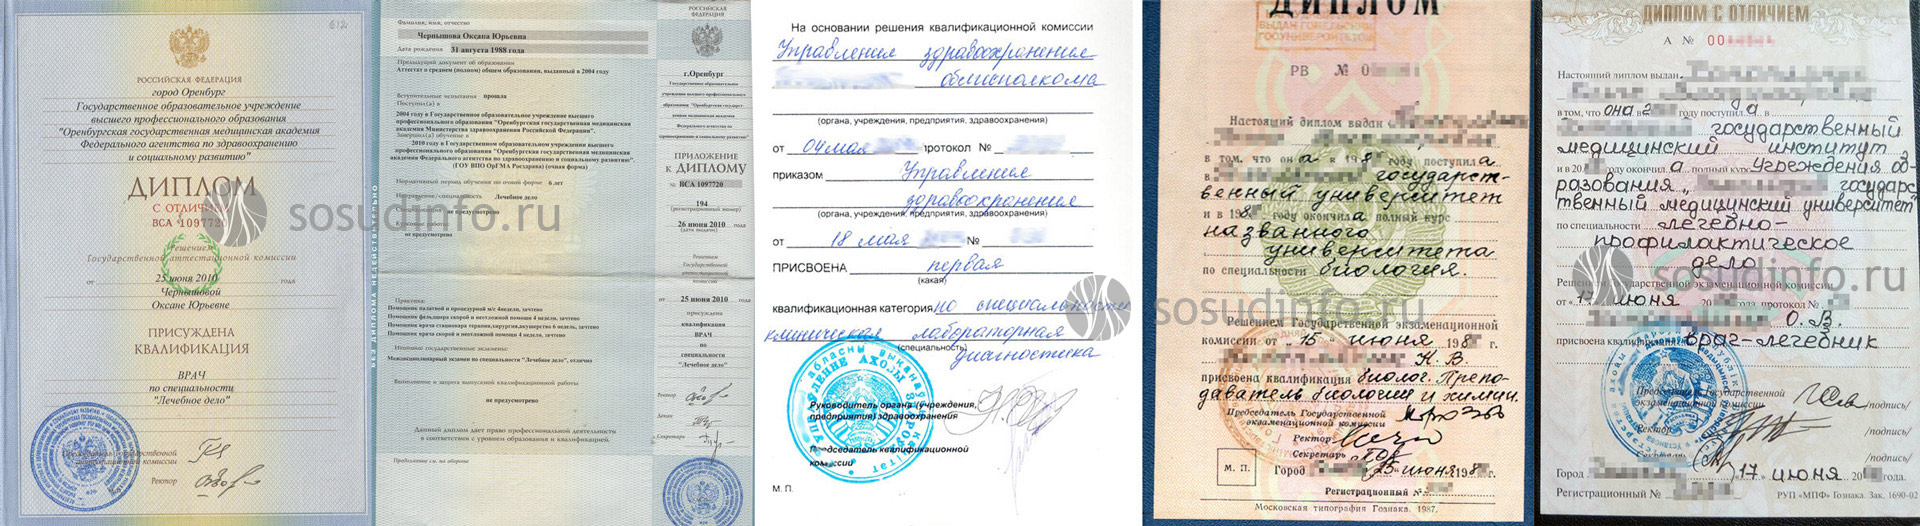 612
РОССИЙСКАЯ ФЕДЕРАЦИЯ
город Оренбург
Государственное образовательное учреждение
высшего профессионального образования
"Оренбургская государственная медицинская академия
Федерального агентства по здравоохранению
и социальному развитию"
ДИПЛОМ
С ОТЛИЧИЕМ
ВСА 1097720
Решением
Государственной аттестационной комиссии
от 25 июня 2010 года
Чернышовой
Оксане Юрьевне
ПРИСУЖДЕНА
КВАЛИФИКАЦИЯ
ВРАЧ
по специальности
"Лечебное дело"
Председатель Государственной
аттестационной комиссии
Ректор
sosudinfo.ru
БЕЗ ДИПЛОМА НЕДЕЙСТВИТЕЛЬНО
Фамилия, имя, отчество
Чернышова Оксана Юрьевна
Дата рождения 31 августа 1988 года
Предыдущий документ об образовании
Аттестат о среднем (полном) общем образовании, выданный в 2004 году
Вступительные испытания прошла
Поступил(а) в
2004 году в Государственное образовательное учреждение высшего
профессионального образования "Оренбургская государственная медицинская
академия Министерства здравоохранения Российской Федерации".
Завершил(а) обучение в
2010 году в Государственном образовательном учреждении высшего
профессионального образования "Оренбургская государственная медицинская
академия Федерального агентства по здравоохранению и социальному развитию".
(ГОУ ВПО ОрГМА Росздрава) (очная форма)
Нормативный период обучения по очной форме 6 лет
Направление/специальность Лечебное дело
не предусмотрено
не предусмотрено
Практика:
Помощник палатной и процедурной м/с 4недели, зачтено
Помощник фельдшера скорой и неотложной помощи 4 недели, зачтено
Помощник врача стационара терапия,хирургия,акушерство 6 недель, зачтено
Помощник врача скорой и неотложной помощи 4 недели, зачтено
Итоговые государственные экзамены:
Междисциплинарный экзамен по специальности "Лечебное дело", отлично
Выполнение и защита выпускной квалификационной работы
не предусмотрено
Данный диплом дает право профессиональной деятельности
в соответствии с уровнем образования и квалификацией.
Продолжение см. на обороте
РОССИЙСКАЯ
ФЕДЕРАЦИЯ
г.Оренбург
Государственное образовательное
учреждение высшего профессионального
образования "Оренбургская государст-
венная медицинская академия
Федерального агентства по
здравоохранению и социальному развитию"
ПРИЛОЖЕНИЕ
к ДИПЛОМУ
№ ВСА 1097720
194
(регистрационный номер)
26 июня 2010 года
(дата выдачи)
Решением
Государственной
аттестационной
комиссии
от 25 июня 2010 года
присуждена
квалификация
ВРАЧ
по
специальности
"Лечебное дело"
Ректор
Декан
Секретарь
На основании решения квалификационной комиссии
Управления здравоохранения
облисполкома
(органа, учреждения, предприятия, здравоохранения)
от 04 мая протокол №
приказом Управления
здравоохранения
(органа, учреждения, предприятия, здравоохранения)
от 18 мая №
ПРИСВОЕНА первая
(какая)
квалификационная категория по специальности
клиническая лабораторная
(специальность)
диагностика
Руководитель органа (учреждения,
предприятия) здравоохранения
Председатель квалификационной
комиссии
М. П.
sosudinfo.ru
ДИПЛОМ
РВ № 0
Настоящий диплом выдан
в том, что она в 198 году поступила
в государст-
венный университет
и в 198 году окончила полный курс
названного
университета
по специальности биология.
Решением Государственной экзаменационной
комиссии от 15 июня 198 г.
Н. В.
присвоена квалификация биолог. Препо-
даватель биологии и химии.
Председатель Государственной
экзаменационной комиссии
Ректор
Секретарь
М. П.
Город 25 июня 198 г.
Регистрационный №
Московская типография Гознака. 1987.
ДИПЛОМ С ОТЛИЧИЕМ
А № 00
Настоящий диплом выдан
в том, что она в 2 году поступила в
государственный
медицинский институт
и в 20 окончила полный курс учреждения об-
разования „ государс
твенный медицинский университет"
по специальности лечебно-
профилактическое
дело
Решением Государственной экзаменационной комиссии
от "17" июня года, протокол №
О. В.
присвоена квалификация врач-лечебник
Председатель Государственной
экзаменационной комиссии /подпись/
Ректор /подпись/
Секретарь /подпись/
Город 17 июня 20 года.
Регистрационный № РУП «МПФ» Гознака. Зак. 1690-02
sosudinfo.ru